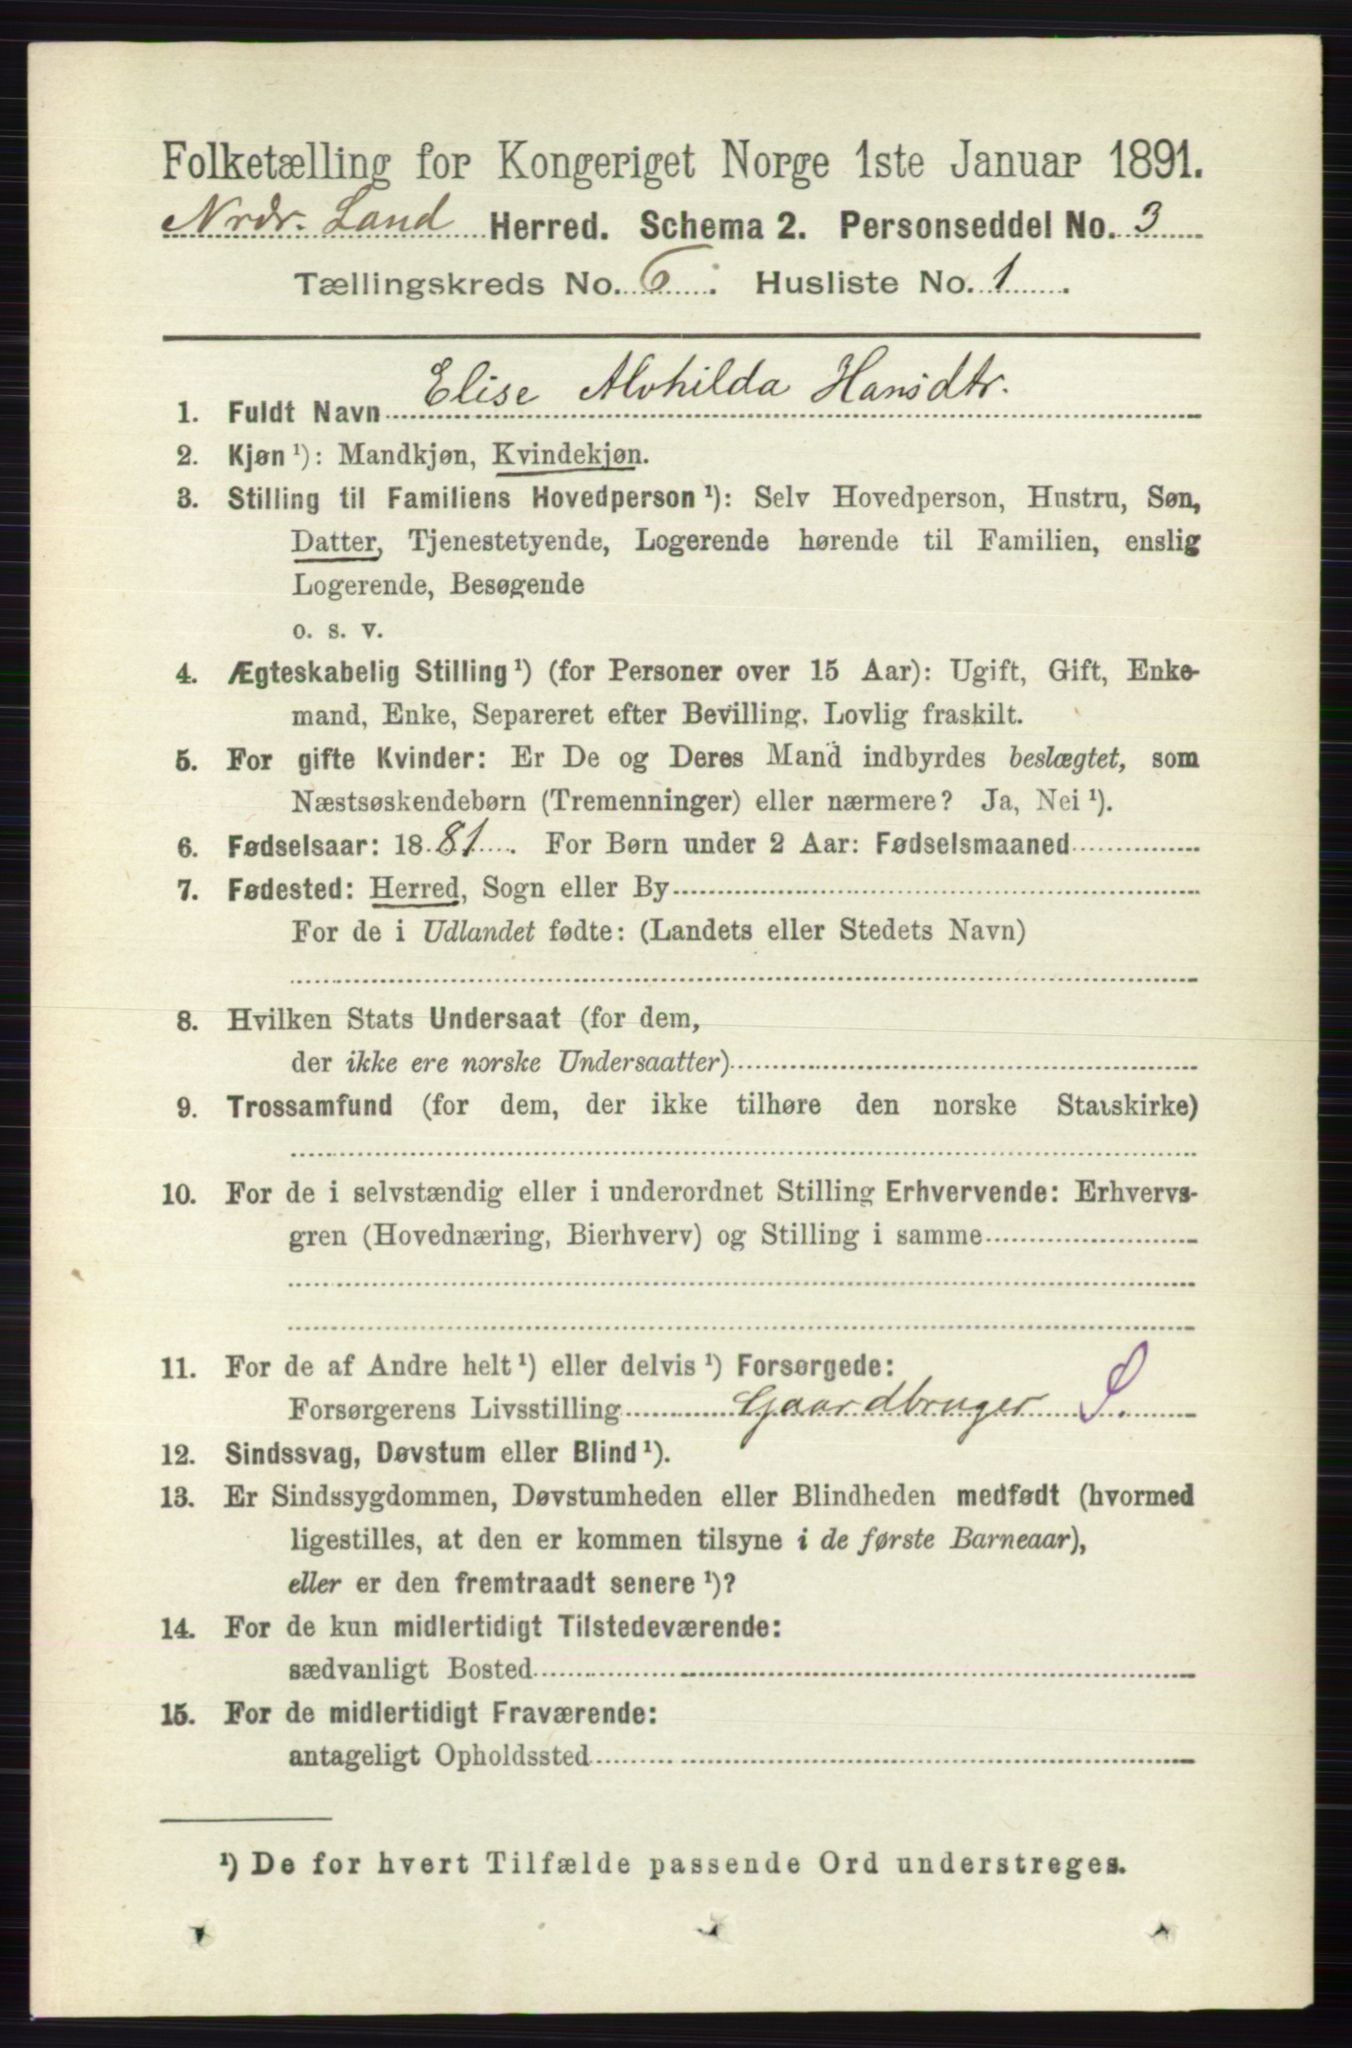 Folketælling for Kongeriget Norge 1ste Januar 1891.
Nrdr. Land Herred. Schema 2. Personseddel No. 3
Tællingskreds No. 6. Husliste No. 1.
1. Fuldt Navn Elise Alvhilda Hansdtr.
2. Kjøn¹): Mandkjøn, Kvindekjøn.
3. Stilling til Familiens Hovedperson¹): Selv Hovedperson, Hustru, Søn,
Datter, Tjenestetyende, Logerende hørende til Familien, enslig
Logerende, Besøgende
o. s. v.
4. Ægteskabelig Stilling¹) (for Personer over 15 Aar): Ugift, Gift, Enke-
mand, Enke, Separeret efter Bevilling. Lovlig fraskilt.
5. For gifte Kvinder: Er De og Deres Mand indbyrdes beslægtet, som
Næstsøskendebørn (Tremenninger) eller nærmere? Ja, Nei¹).
6. Fødselsaar: 1881. For Børn under 2 Aar: Fødselsmaaned
7. Fødested: Herred, Sogn eller By
For de i Udlandet fødte: (Landets eller Stedets Navn)
8. Hvilken Stats Undersaat (for dem,
der ikke ere norske Undersaatter)
9. Trossamfund (for dem, der ikke tilhøre den norske Statskirke)
10. For de i selvstændig eller i underordnet Stilling Erhvervende: Erhvervs-
gren (Hovednæring, Bierhverv) og Stilling i samme
11. For de af Andre helt¹) eller delvis¹) Forsørgede:
Forsørgerens Livsstilling Gaardbruger S.
12. Sindssvag, Døvstum eller Blind¹).
13. Er Sindssygdommen, Døvstumheden eller Blindheden medfødt (hvormed
ligestilles, at den er kommen tilsyne i de første Barneaar),
eller er den fremtraadt senere¹)?
14. For de kun midlertidigt Tilstedeværende:
sædvanligt Bosted
15. For de midlertidigt Fraværende:
antageligt Opholdssted
¹) De for hvert Tilfælde passende Ord understreges.